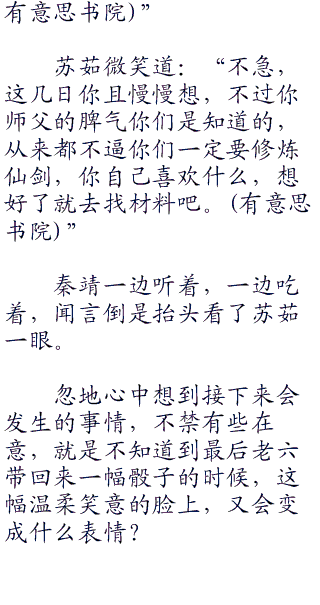 有意思书院)”
苏茹微笑道：“不急，
这几日你且慢慢想，不过你
师父的脾气你们是知道的，
从来都不逼你们一定要修炼
仙剑，你自己喜欢什么，想
好了就去找材料吧。(有意思
书院)”
秦靖一边听着，一边吃
着，闻言倒是抬头看了苏茹
一眼。
忽地心中想到接下来会
发生的事情，不禁有些在
意，就是不知道到最后老六
带回来一幅骰子的时候，这
幅温柔笑意的脸上，又会变
成什么表情？